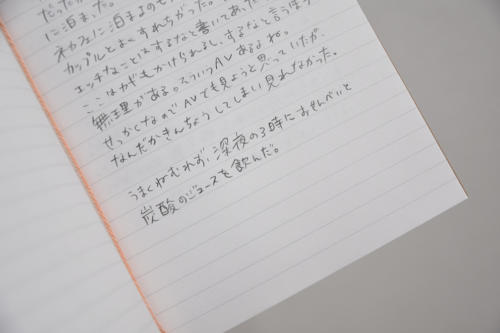 に泊まった。
ネカフェに泊まるのも
カップルとよくすれちがった。
エッチなことはするなと書いてあっ
ここはカギもかけられるし、するなと言うほう
無理がある。そういうAVあるよね。
せっかくなのでAVでも見ようと思っていたが、
なんだかきんちょうしてしまい見れなかった。
うまくねむれず、深夜の3時におせんべいと
炭酸のジュースを飲んだ。